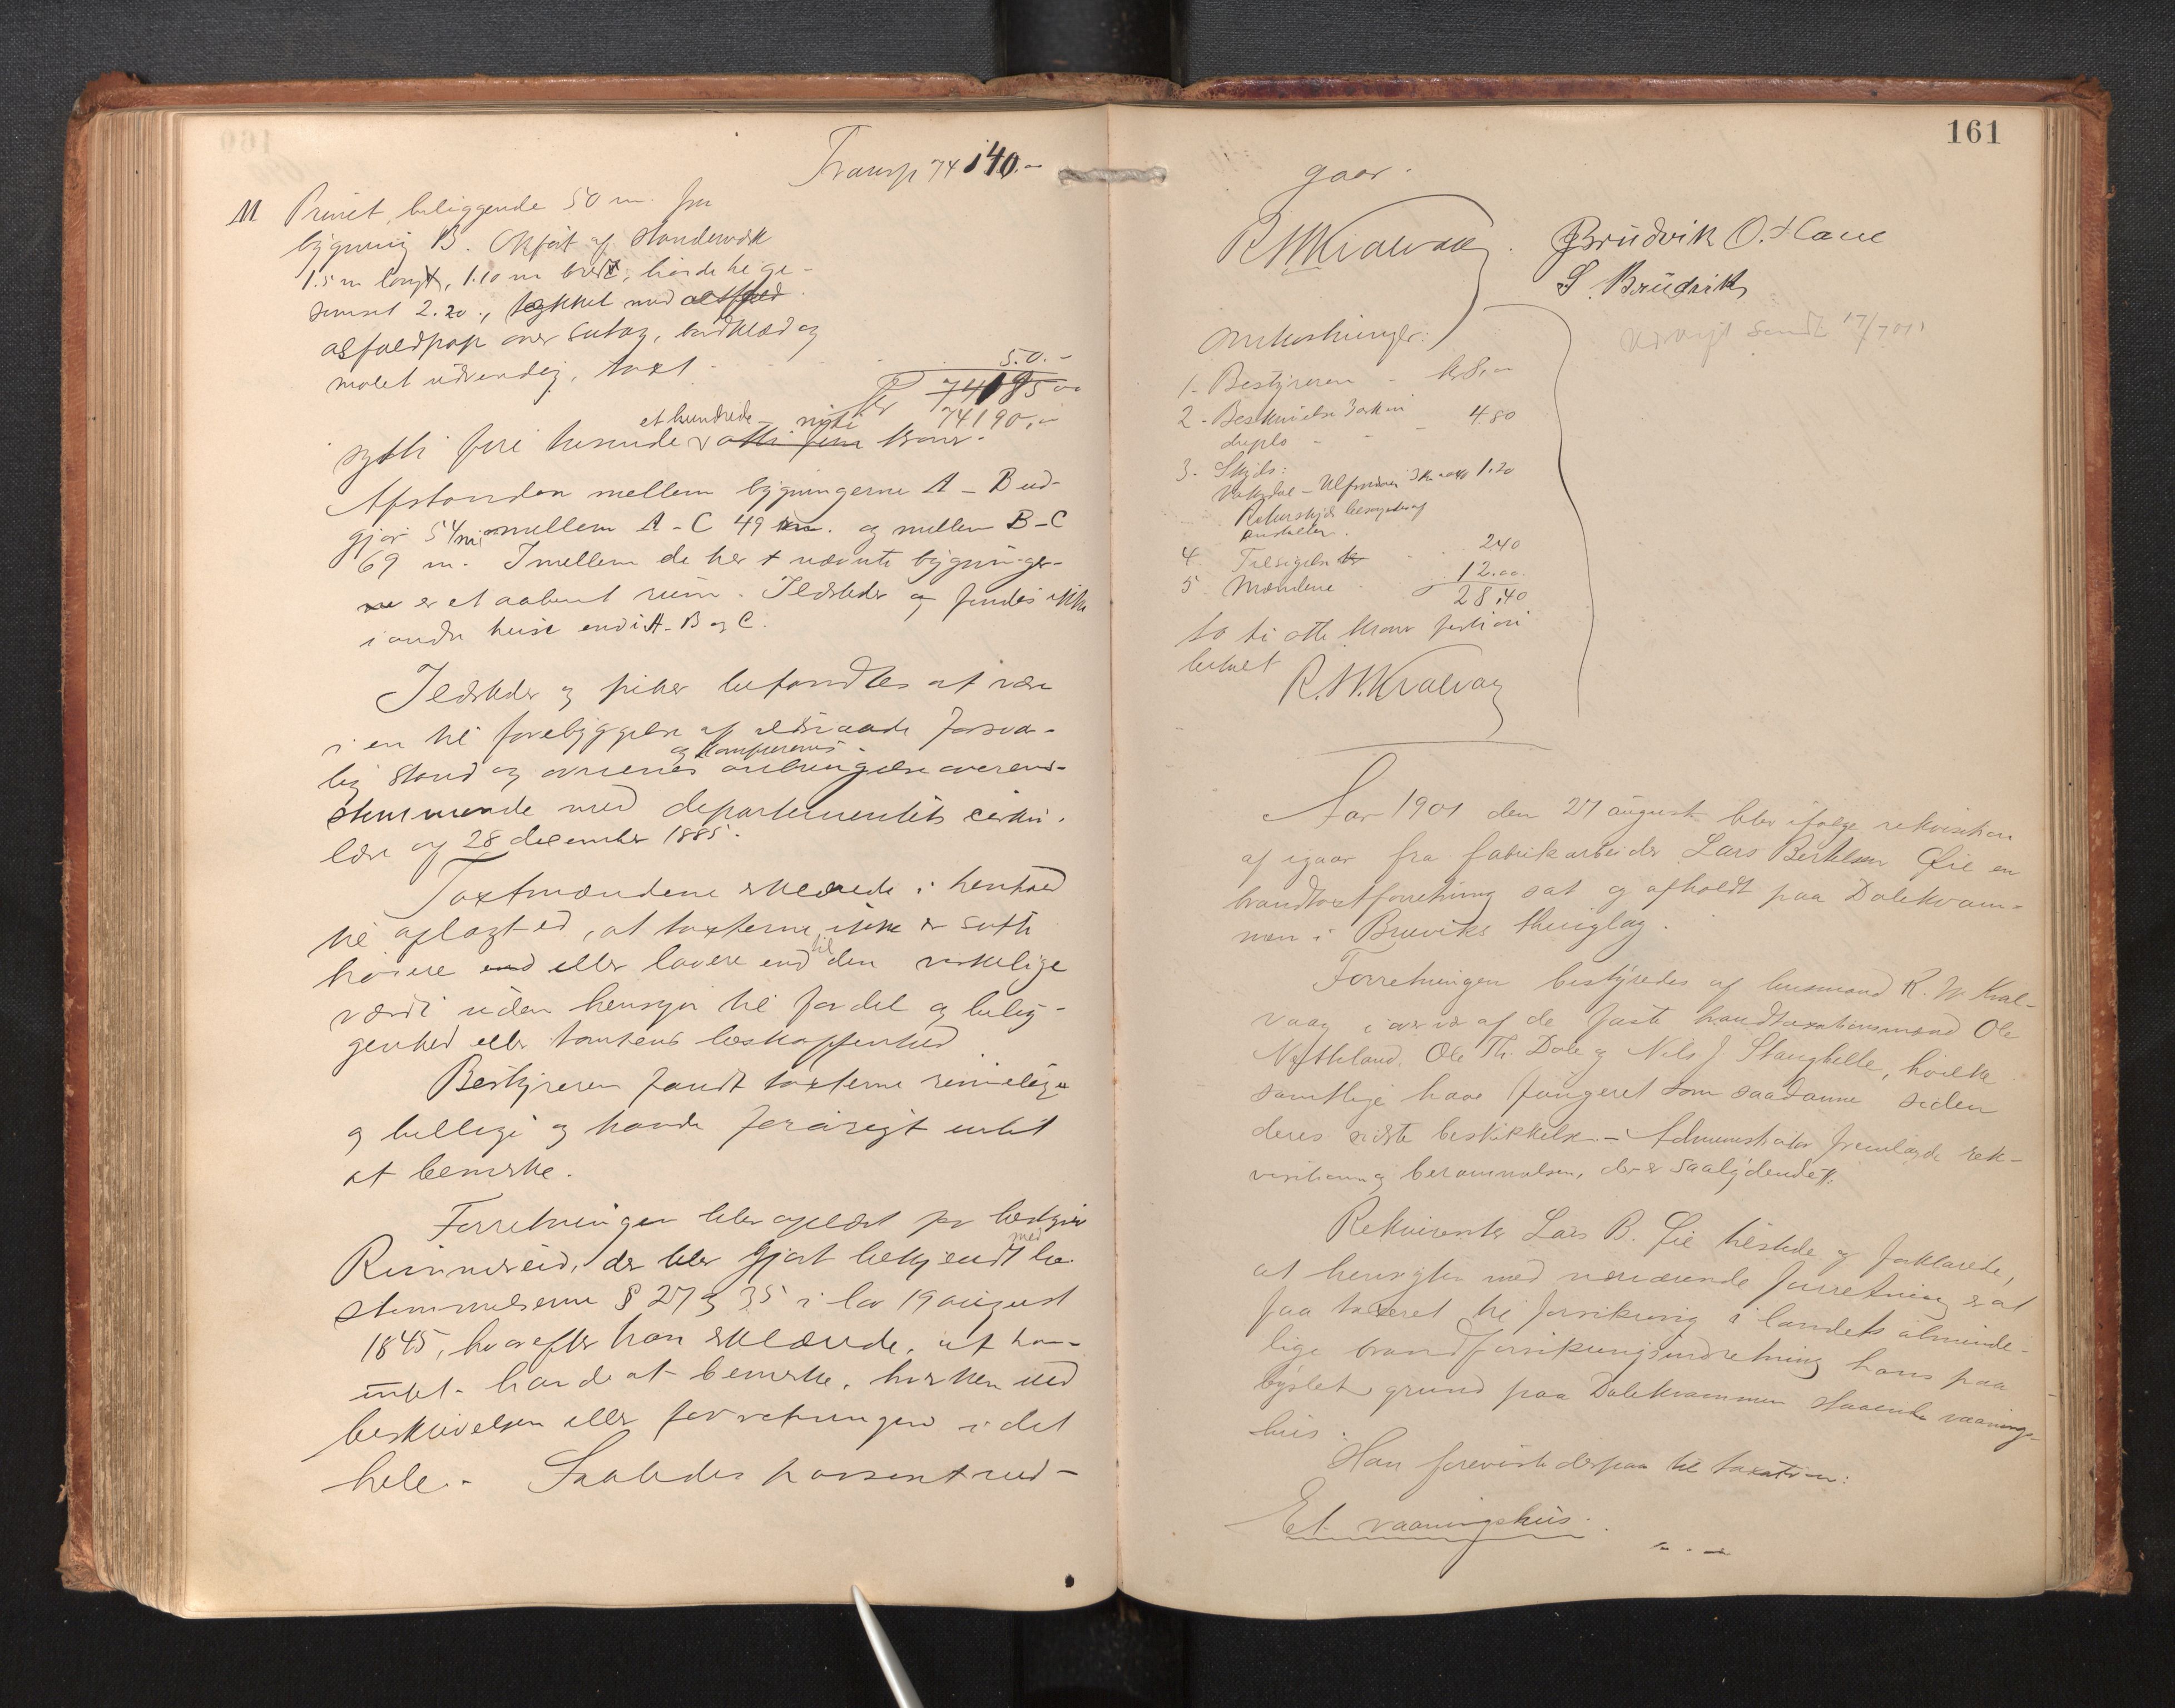 Transp 74 140.-
M Privet, beliggende 50 m. fra
bygning B. Opført af standerværk
1.5 m langt, 1.10 m bredt, høide til ge-
simset 2.20, tækket med
asfaldpap over sutag, bordklæd og
malet udvendig, taxt - 50.-
Kr 74185 00
et hundrede niti 74190,-
sytti fire tusende & otti fem kroner.
Afstanden mellem bygningerne A - B ud-
gjør 54 m mellem A - C 49 m. og mellem B - C
69 m. Imellem de her nævnte bygninger-
ne er et aabent rum. Ildsteder og findes ikke
i andre huse end i A - B og C.
Ildsteder og piber befandtes at være
i en til forebyggelse af ildsvaade forsva-
lig stand og ovnenes og komfurernes anbringelse overens-
stemmende med departementets cirku-
lære af 28 december 1885.
Taxtmændene erklærede i henhold
til aflagt ed, at taxterne ikke er satte
høiere end eller lavere end til den virkelige
værdi uden hensyn til fordel og belig-
genhed eller tomtens beskaffenhed
Bestyreren fandt taxterne rimelige
og billige og havde forøvrigt intet
at bemerke.
Forretningen blev oplæst for
der blev gjort bekjendt med be-
stemmelserne § 27 og 35 i lov 19 august
1845, hvorefter han erklærede, at han
intet havde at bemerke, hverken ved
beskrivelsen eller forretningen i det
hele. - Saaledes passeret ved-
161
gaar.
R. M. Kvalvaag. Brüdvik O. Hane
S. Brüdvik
Udskrift sendt 17/7 01
Omkostninger:
1 - Bestyreren - kr 8,00
2 - Beskrivelse 3 ark in
duplo - - - 4.80
3 - Skyds:
Vaksdal - 1.20
Returskyds besørgedes af
anstalten.
4 Tilsigelse 2.40
5 Mændene - 12.00
28.40
to ti otte kroner firti øre
betalt R. M. Kvalvaag
Aar 1901 den 27 august blev ifølge rekvisition
af igaar fra fabrikarbeider Lars Bertelsen Øie en
brandtaxtforretning sat og afholdt paa Dalekvam-
men i Bruviks thinglag.
Forretningen bestyredes af lensmand R. M. Kval-
vaag i overvær af de faste brandtaxationsmænd Ole
Ole Th. Dale og Nils J. Stanghelle, hvilke
samtlige have fungeret som saadanne siden
deres sidste beskikkelse. - Administrator fremlagde rek-
visition og berammelsen, der er saalydende:
Rekvirenten Lars B. Øie tilstede og forklarede,
at hensigten med nærværende forretning er at
faa taxeret til forsikring i landets alminde-
lige brandforsikringsindretning hans paa
bygslet grund paa Dalekvammen staaende vaanings-
hus.
Han foreviste derpaa til taxation:
Et vaaningshus.